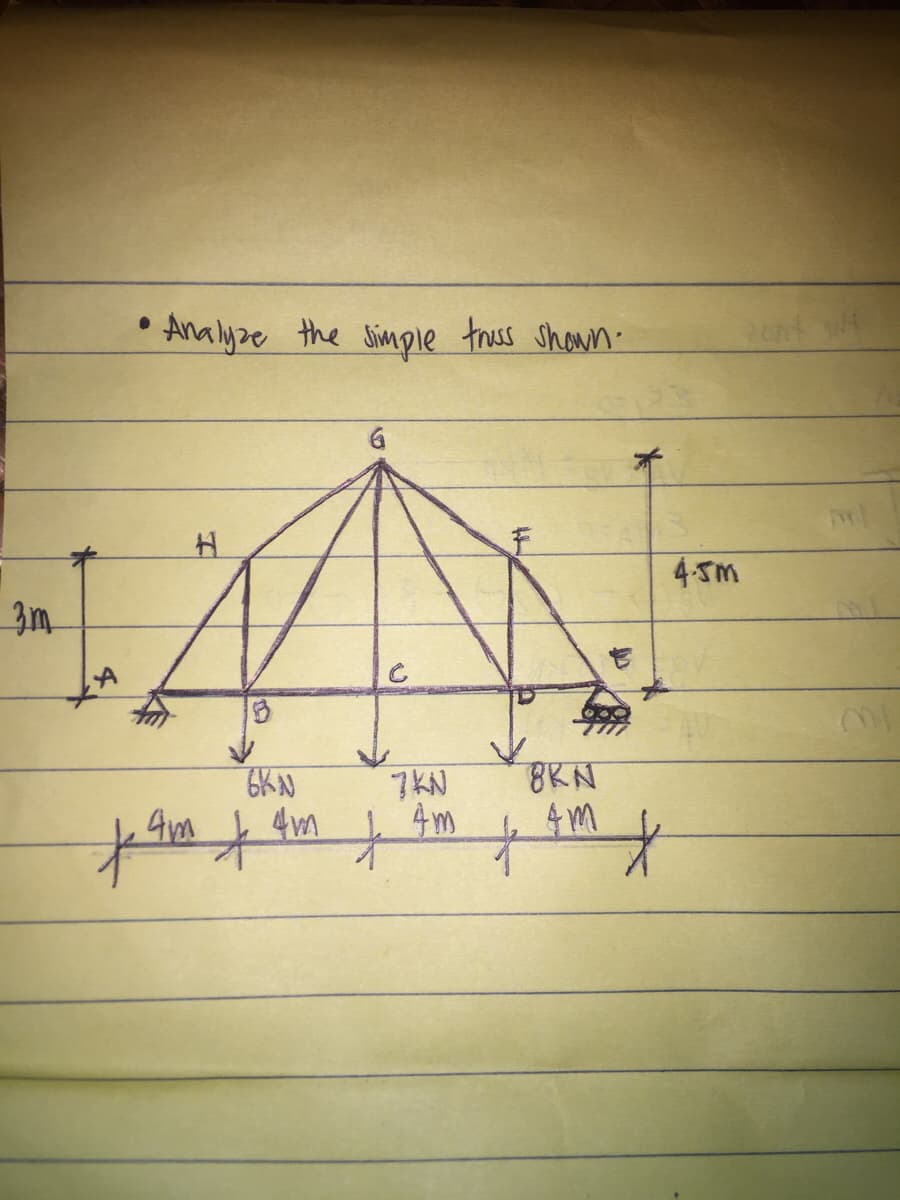 • Analyze the simple truss shown.
G
H
F
4.5m
3m
A
C
E
B
D
6KN
7KN
8KN
4m
4m
4m
4m